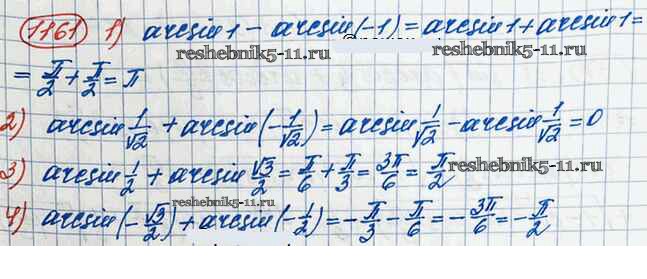 1161 1) arcsin 1 - arcsin(-1) = arcsin 1 + arcsin 1 =
reshebnik5-11.ru
= π/2 + π/2 = π
reshebnik5-11.ru
2) arcsin 1/√2 + arcsin(-1/√2) = arcsin 1/√2 - arcsin 1/√2 = 0
3) arcsin 1/2 + arcsin √3/2 = π/6 + π/3 = 3π/6 = π/2
reshebnik5-11.ru
4) arcsin(-√3/2) + arcsin(-1/2) = -π/3 - π/6 = -3π/6 = -π/2
reshebnik5-11.ru